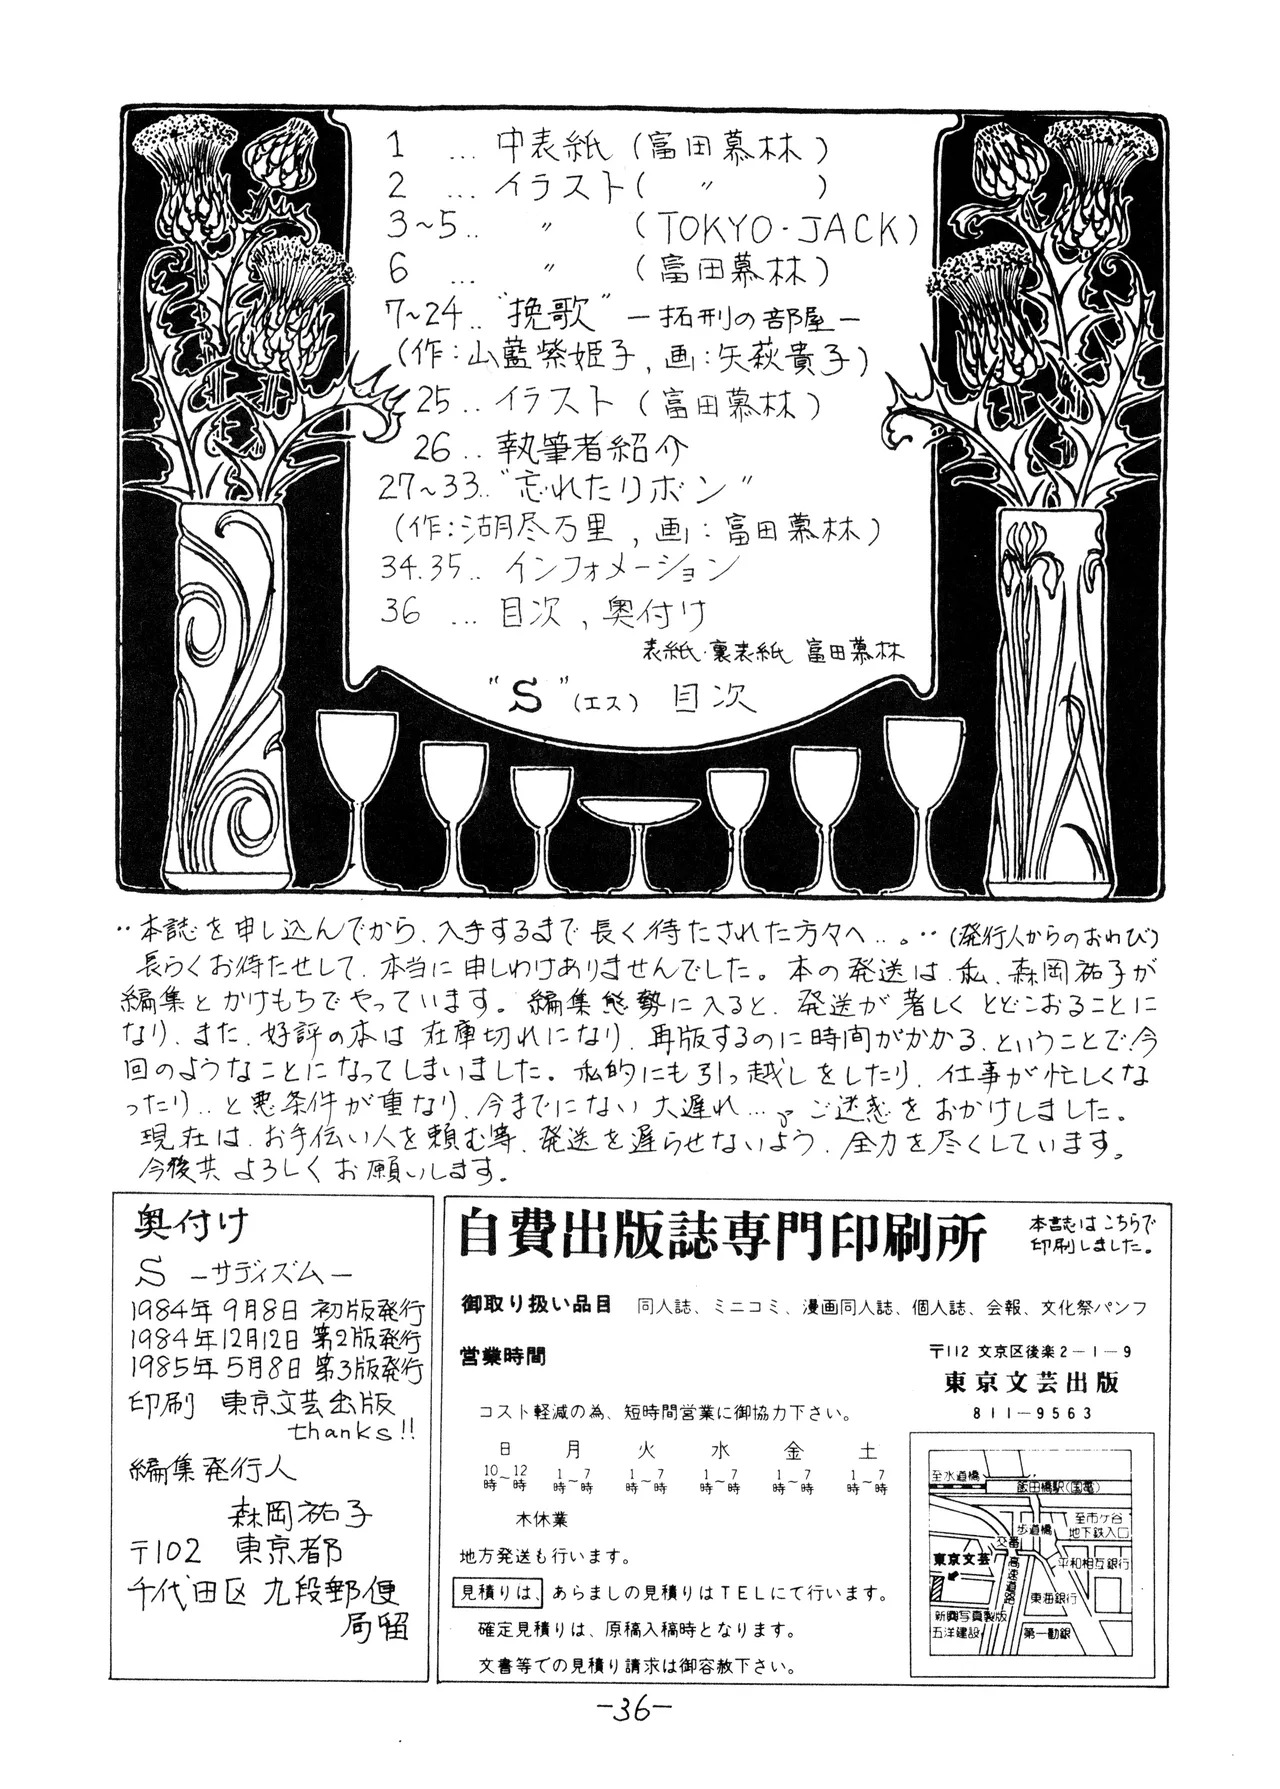 1 ... 中表紙 (富田慕林)
2 ... イラスト( 〃 )
3~5.. 〃 (TOKYO-JACK)
6 ... 〃 (富田慕林)
7~24.. "挽歌" —拓刑の部屋—
(作:山藍紫姫子,画:矢萩貴子)
25.. イラスト (富田慕林)
26.. 執筆者紹介
27~33.. "忘れたリボン"
(作:湖月尽万里,画:富田慕林)
34.35.. インフォメーション
36 ... 目次,奥付け
表紙・裏表紙 富田慕林
"S"(エス) 目次
‥本誌を申し込んでから、入手するまで長く待たされた方々へ…。‥(発行人からのおわび)
長らくお待たせして、本当に申しわけありませんでした。本の発送は、私、森岡祐子が
編集とかけもちでやっています。編集態勢に入ると、発送が著しくとどこおることに
なり、また、好評の本は在庫切れになり、再版するのに時間がかかる、ということで、今
回のようなことになってしまいました。私的にも引っ越しをしたり、仕事が忙しくな
ったり‥と悪条件が重なり、今までにない大遅れ…。ご迷惑をおかけしました。
現在は、お手伝い人を頼む等、発送を遅らせないよう、全力を尽くしています。
今後共よろしくお願いします。
奥付け
S —サディズム—
1984年9月8日 初版発行
1984年12月12日 第2版発行
1985年5月8日 第3版発行
印刷 東京文芸出版
thanks!!
編集発行人
森岡祐子
〒102 東京都
千代田区九段郵便
局留
自費出版誌専門印刷所
本誌はこちらで
印刷しました。
御取り扱い品目 同人誌、ミニコミ、漫画同人誌、個人誌、会報、文化祭パンフ
営業時間
〒112 文京区後楽2-1-9
東京文芸出版
811-9563
コスト軽減の為、短時間営業に御協力下さい。
日 月 火 水 金 土
10時~12時 1時~7時 1時~7時 1時~7時 1時~7時 1時~7時
木休業
地方発送も行います。
見積りは、あらましの見積りはTELにて行います。
確定見積りは、原稿入稿時となります。
文書等での見積り請求は御容赦下さい。
至水道橋
飯田橋駅(国電)
至市ケ谷
地下鉄入口
歩道橋
交番
東京文芸
高速道路
平和相互銀行
東海銀行
新興写真製版
五洋建設
第一勧銀
-36-